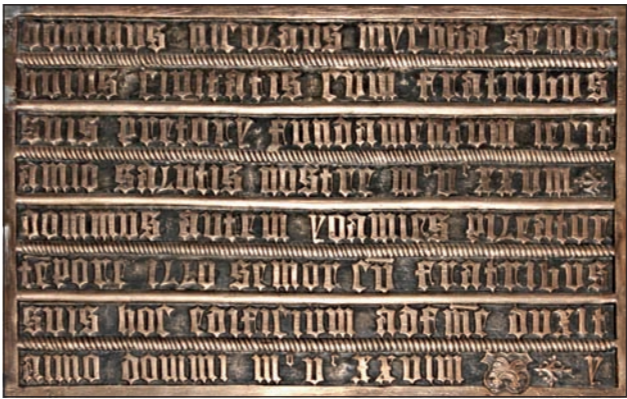 dominus nicolaus senior
huius civitatis cum fratribus
suis pretorij fundamentum iecit
anno salutis nostre mᵒ vᶜ xxviii
dominus autem joannes pileator
tēpore illo senior cū fratribus
suis hoc edificium ad finē duxit
anno domini mᵒ vᶜ